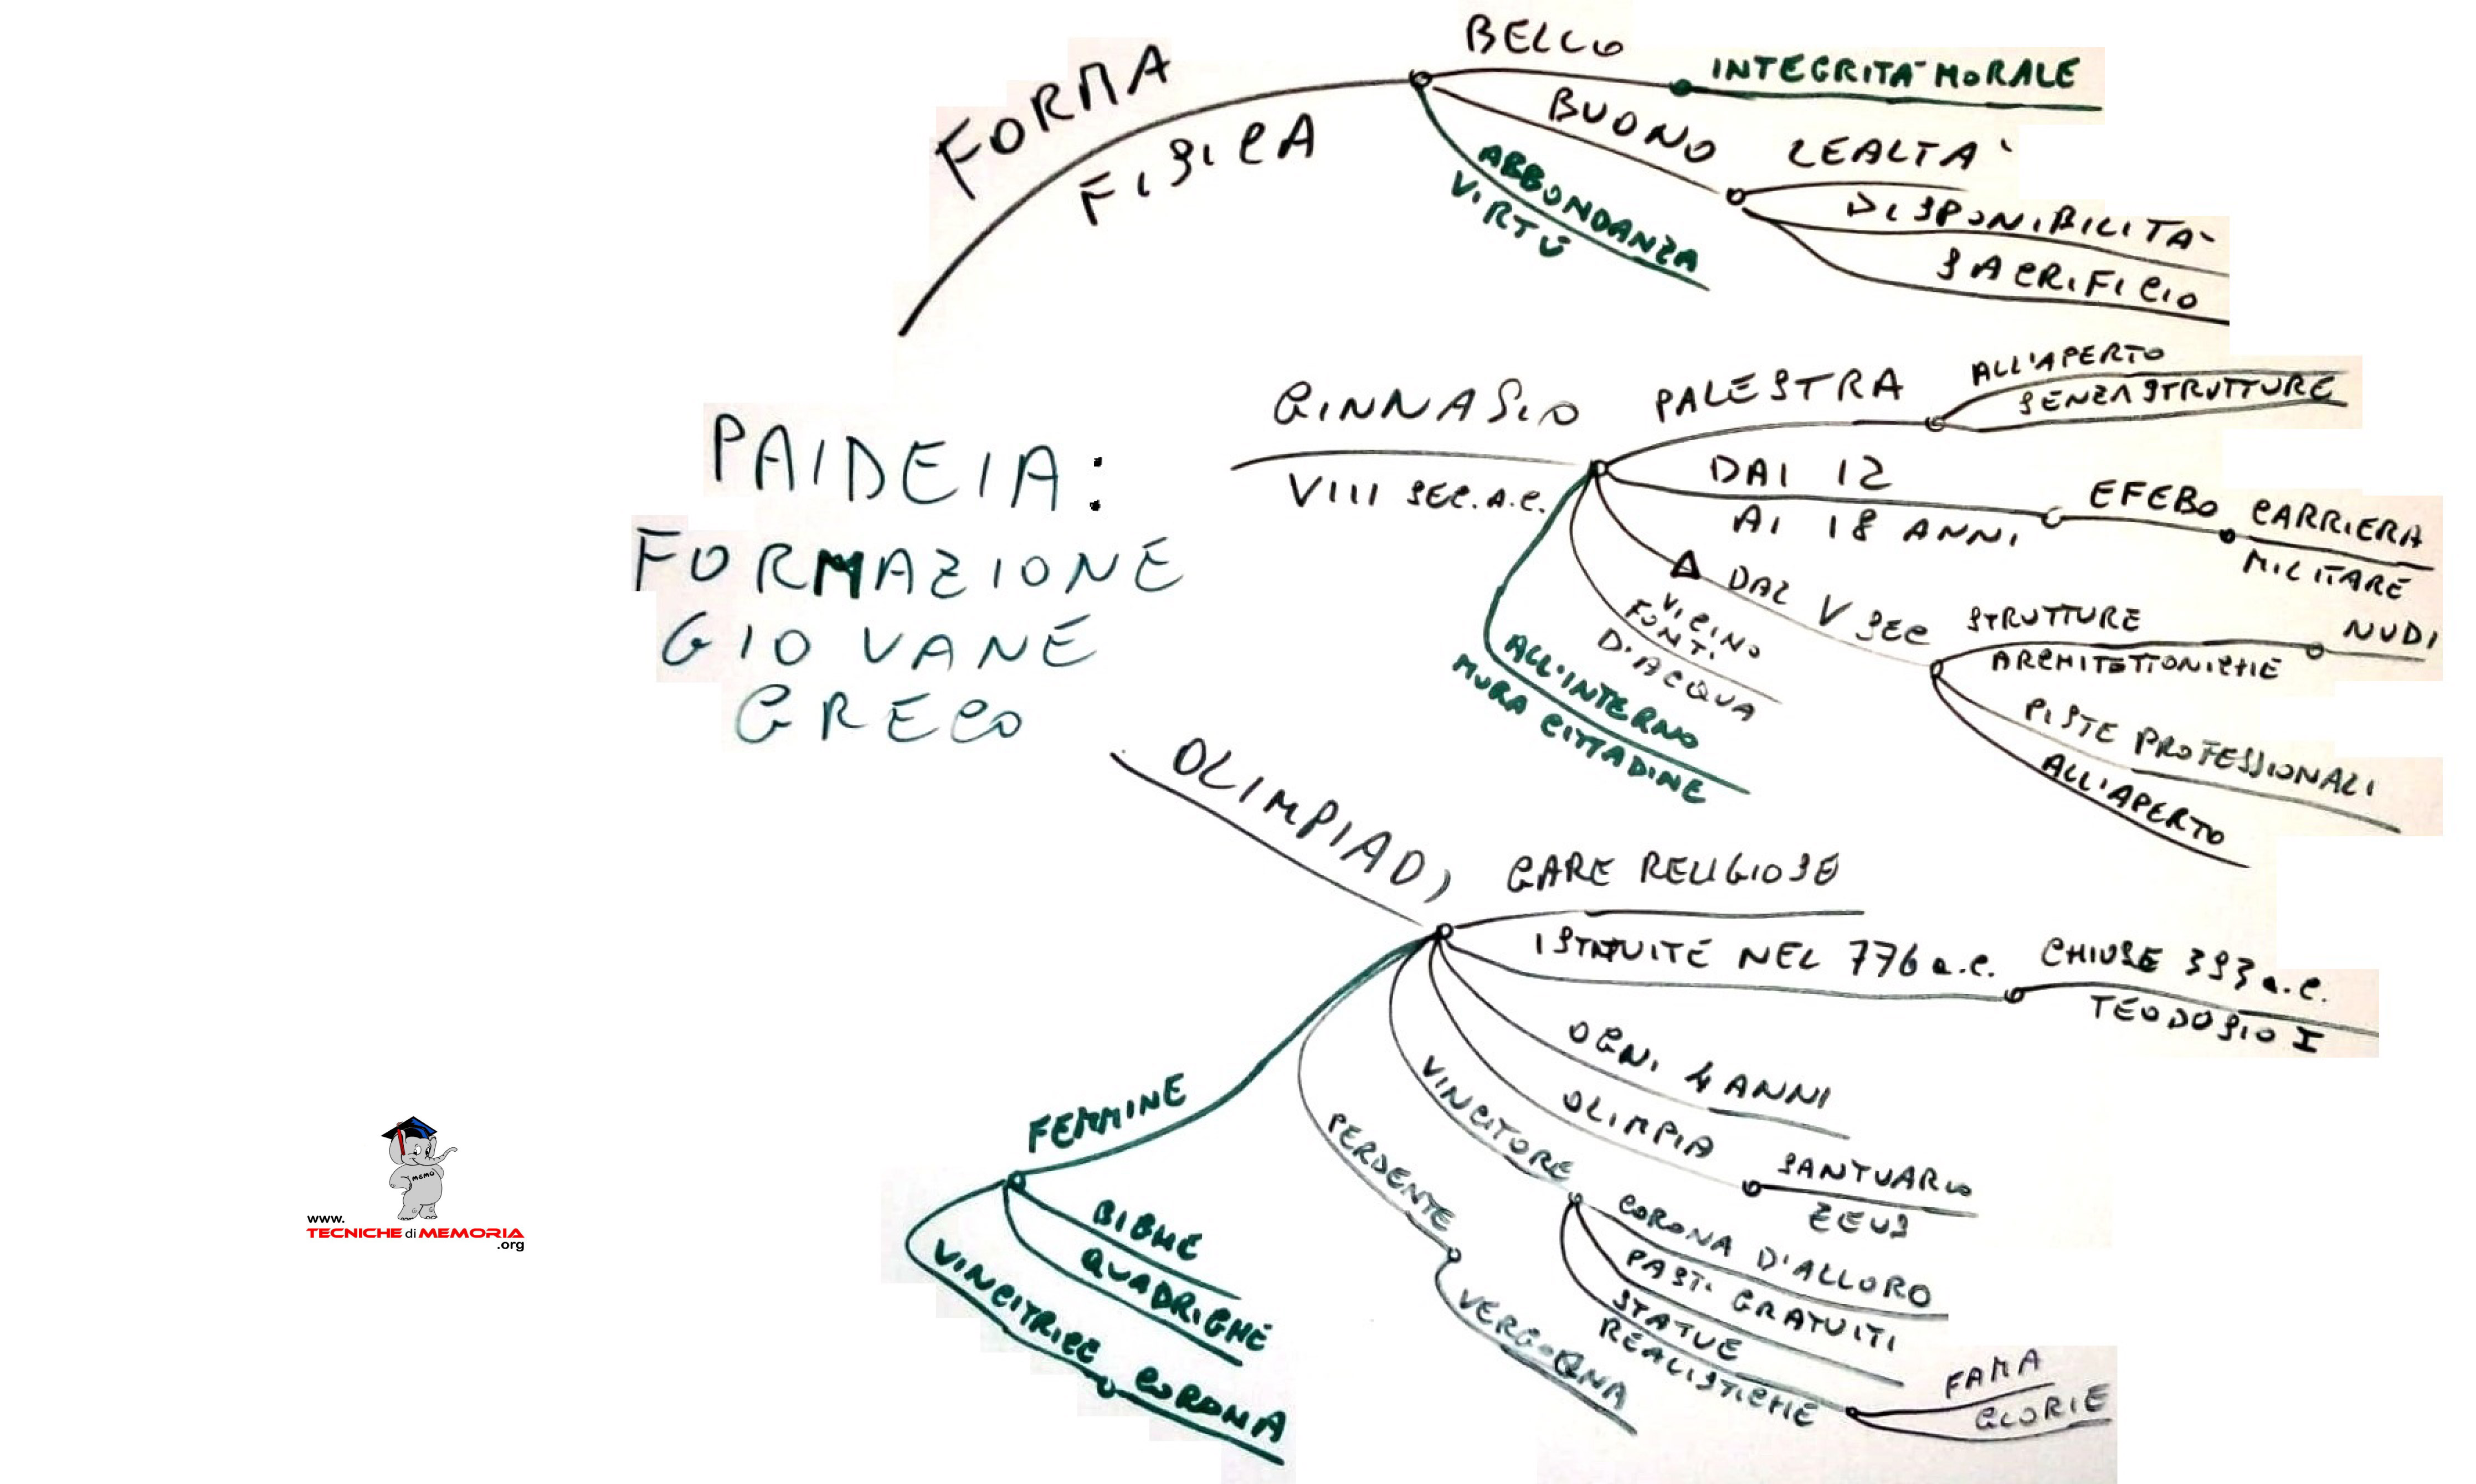 FORMA
FISICA
BELLO
INTEGRITA' MORALE
BUONO
LEALTA'
DISPONIBILITA'
SACRIFICIO
ABBONDANZA
VIRTÙ
PAIDEIA:
FORMAZIONE
GIOVANE
GRECO
GINNASIO
VIII SEC. A.C.
PALESTRA
ALL'APERTO
SENZA STRUTTURE
DAI 12
AI 18 ANNI
EFEBO
CARRIERA
MILITARE
DAL V SEC
STRUTTURE
ARCHITETTONICHE
NUDI
PISTE PROFESSIONALI
ALL'APERTO
VICINO
FONTI
D'ACQUA
ALL'INTERNO
MURA CITTADINE
OLIMPIADI
GARE RELIGIOSE
ISTITUITE NEL 776 a.C.
CHIUSE 393 a.C.
TEODOSIO I
OGNI 4 ANNI
OLIMPIA
SANTUARIO
ZEUS
VINCITORE
CORONA D'ALLORO
PASTI GRATUITI
STATUE
REALISTICHE
FAMA
GLORIE
PERDENTE
VERGOGNA
FEMMINE
BIGHE
QUADRIGHE
VINCITRICE
CORONA
MEMO
www.
TECNICHE di MEMORIA
.org